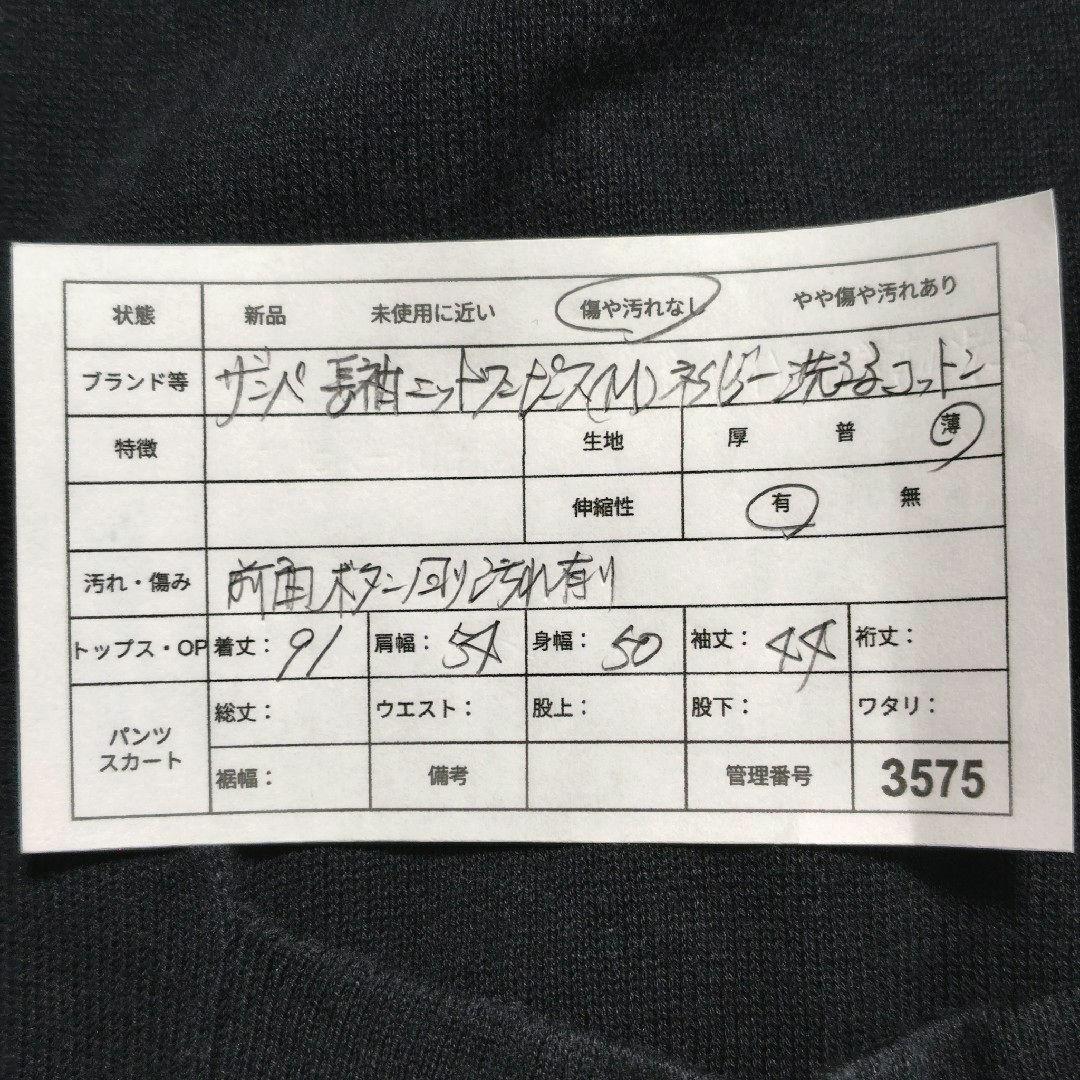 状態 新品 未使用に近い 傷や汚れなし やや傷や汚れあり
ブランド等 ザンパ 長袖ニットワンピース(M) ネイビー 洗えるコットン
特徴 生地 厚 普 薄
伸縮性 有 無
汚れ・傷み 前面ボタン回り汚れ有り
トップス・OP 着丈: 91 肩幅: 54 身幅: 50 袖丈: 44 裄丈:
パンツ スカート 総丈: ウエスト: 股上: 股下: ワタリ:
裾幅: 備考 管理番号 3575